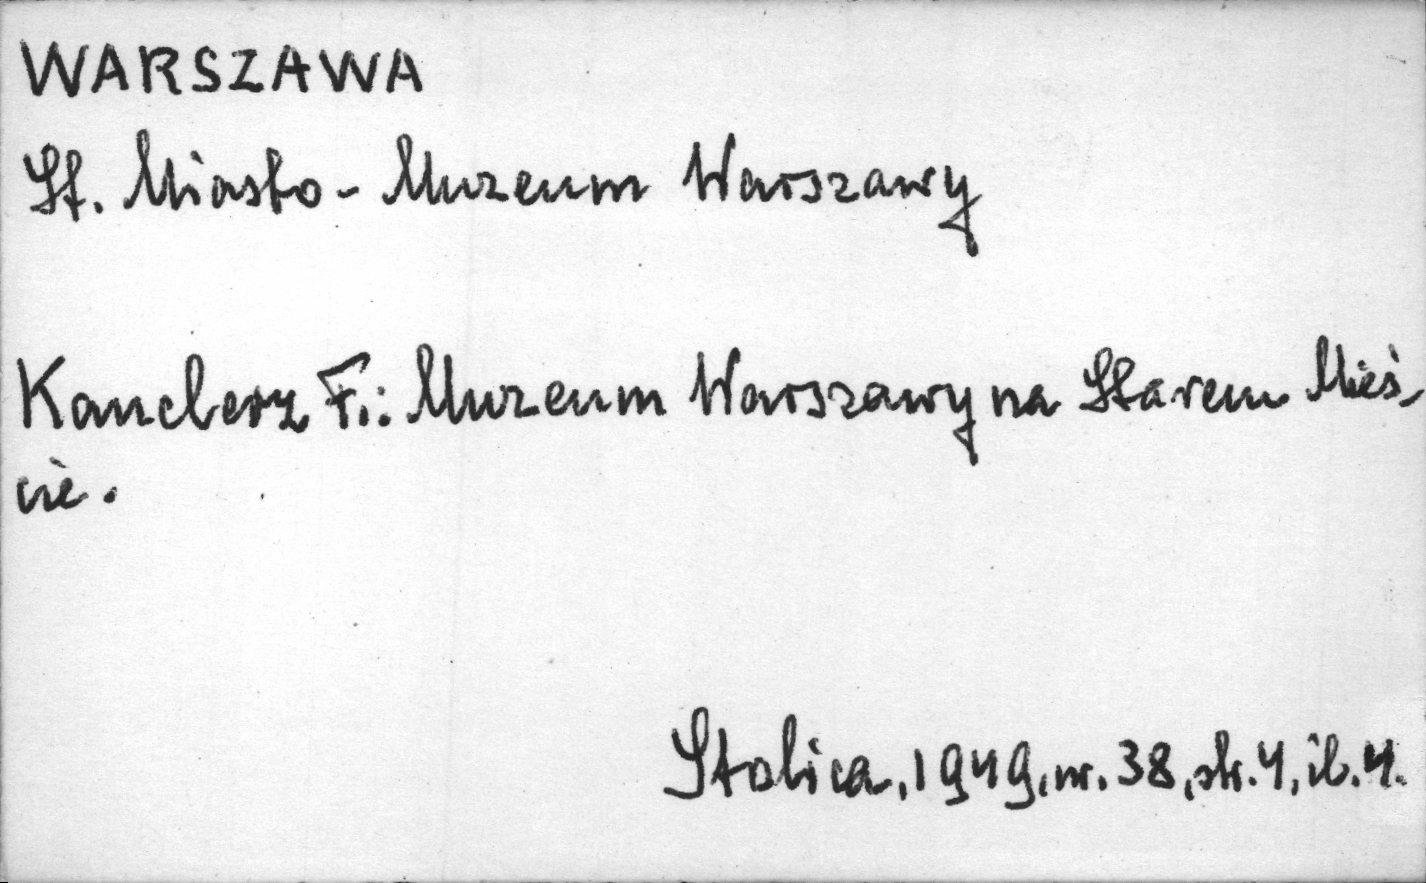 WARSZAWA
St. Miasto - Muzeum Warszawy
Kanclerz F.: Muzeum Warszawy na Starem Mieś-
cie.
Stolica, 1949, nr. 38, str. 4, il. 4.